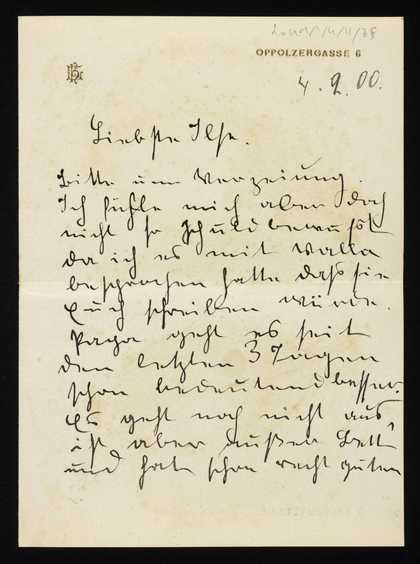 OPPOLZERGASSE 6
4.9.00.
Liebste Ilse.
Bitte um Verzeiung.
Ich fühle mich aber doch
nicht so schuldbewußt
da ich es mit Walla
besprochen hatte daß sie
Euch schreiben würde.
Papa geht es seit
den letzten 3 Tagen
schon bedeutend besser.
Es geht noch nicht aus,
ist aber außer Bett
und hat schon recht guten